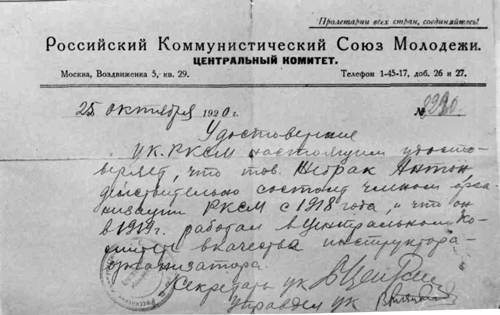 Пролетарии всех стран, соединяйтесь!
Российский Коммунистический Союз Молодежи.
ЦЕНТРАЛЬНЫЙ КОМИТЕТ.
Москва, Воздвиженка 5, кв. 29.
Телефон 1-45-17, доб. 26 и 27.
25 октября 1920 г.
№
Удостоверение
ЦК. РКСМ настоящим удосто-
веряет, что тов. Антон,
действительно состоит членом орга-
низации РКСМ с 1918 года, и что он
в 1919г. работал в Центральном Ко-
митете в качестве инструктора-
организатора.
Секретарь ЦК
Управдел ЦК